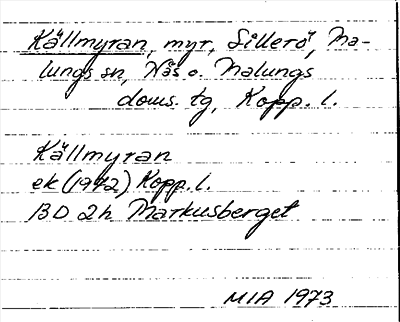 Källmyran, myr, Sillerö, Ma-
lungs sn, Nås o. Malungs
doms. tg, Kopp. l.
Källmyran
ek (1972) Kopp. l.
13 D 2h Markusberget
MIA 1973